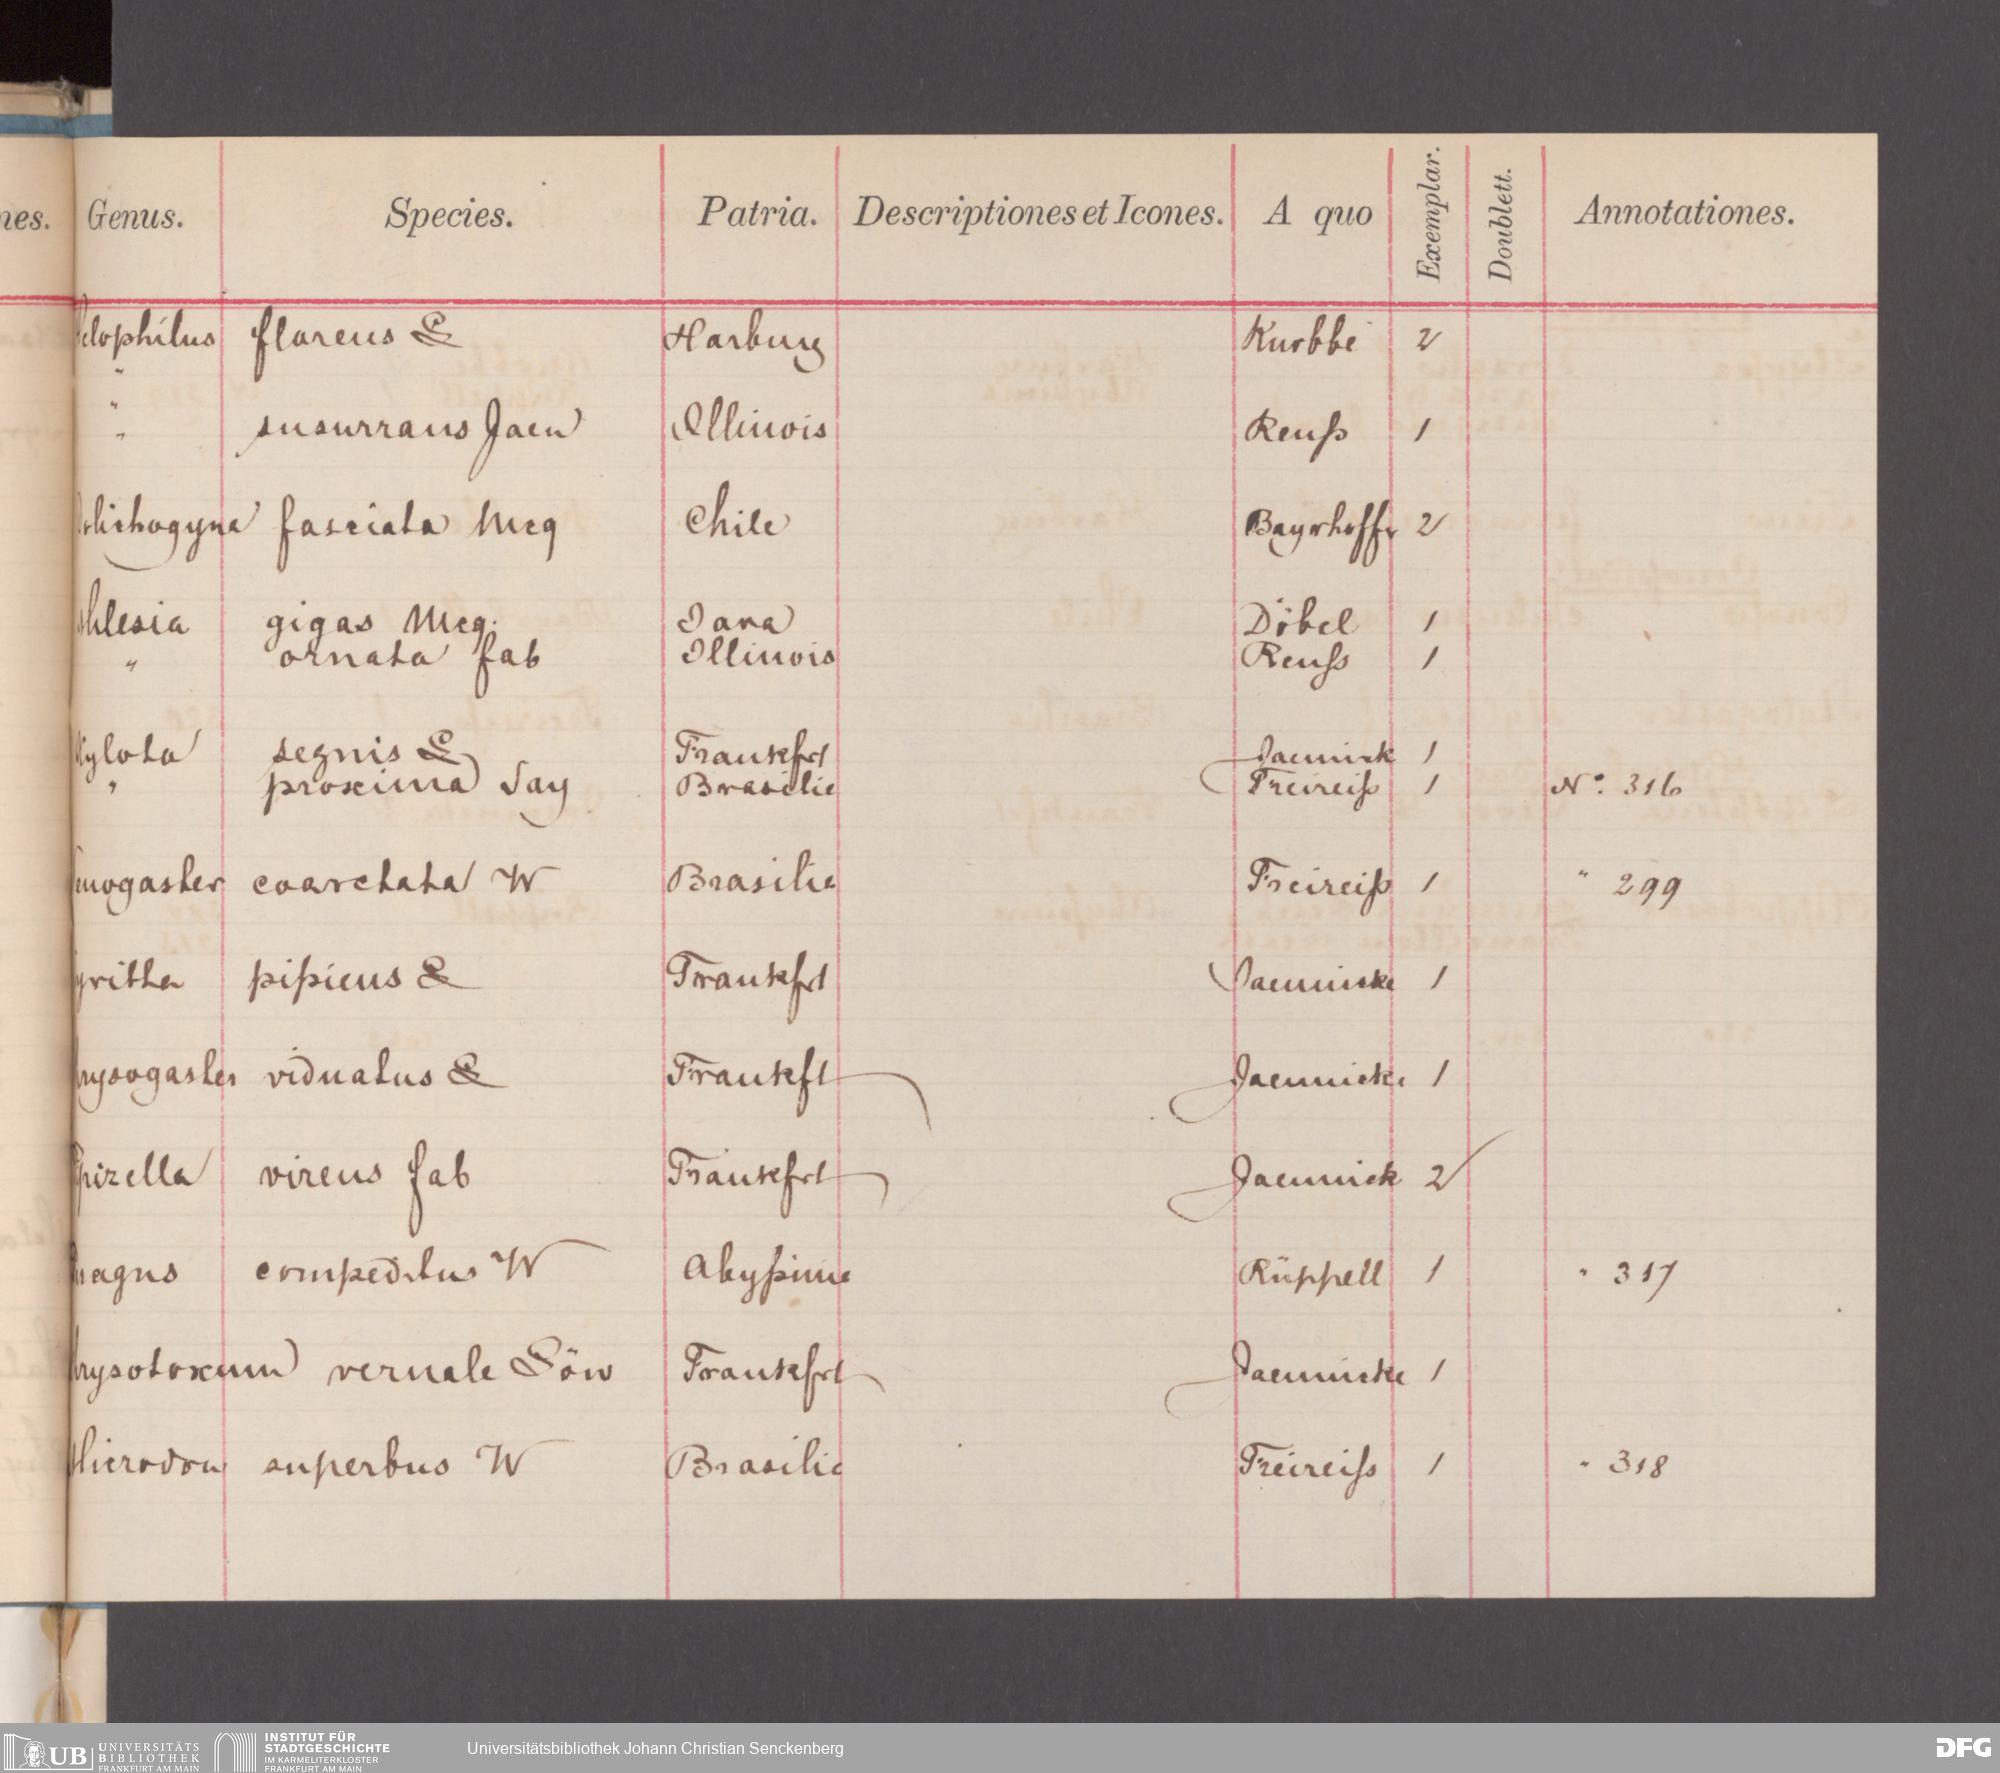 nes. Genus. Species. Patria. Descriptiones et Icones. A quo Exemplar. Doublett. Annotationes.
elophilus floreus L Harburg Knobbe 2
"
"
" susurrans Jaen Illinois Reuß 1
olichogyna fasciata Mcq Chile Bayrhoffr 2
hlesia gigas Mcq. Java Döbel 1
" ornata fab Illinois Reuß 1
ylota segnis L Frankfrt Jaennick 1
" proxima Say Brasilie Freireiß 1 No. 316
nogaster coarctata W Brasilie Freireiß 1 " 299
yritta pipiens L Frankfrt Jaennicke 1
rysogaster viduatus L Frankft Jaennicke 1
pizella virens fab Frankfrt Jaennick 2
agus compeditus W Abyßinie Rüppell 1 " 317
rysotoxum vernale Löw Frankfrt Jaennicke 1
hierodon superbus W Brasilie Freireiß 1 " 318
UB UNIVERSITÄTS
BIBLIOTHEK
FRANKFURT AM MAIN
INSTITUT FÜR
STADTGESCHICHTE
IM KARMELITERKLOSTER
FRANKFURT AM MAIN
Universitätsbibliothek Johann Christian Senckenberg
DFG